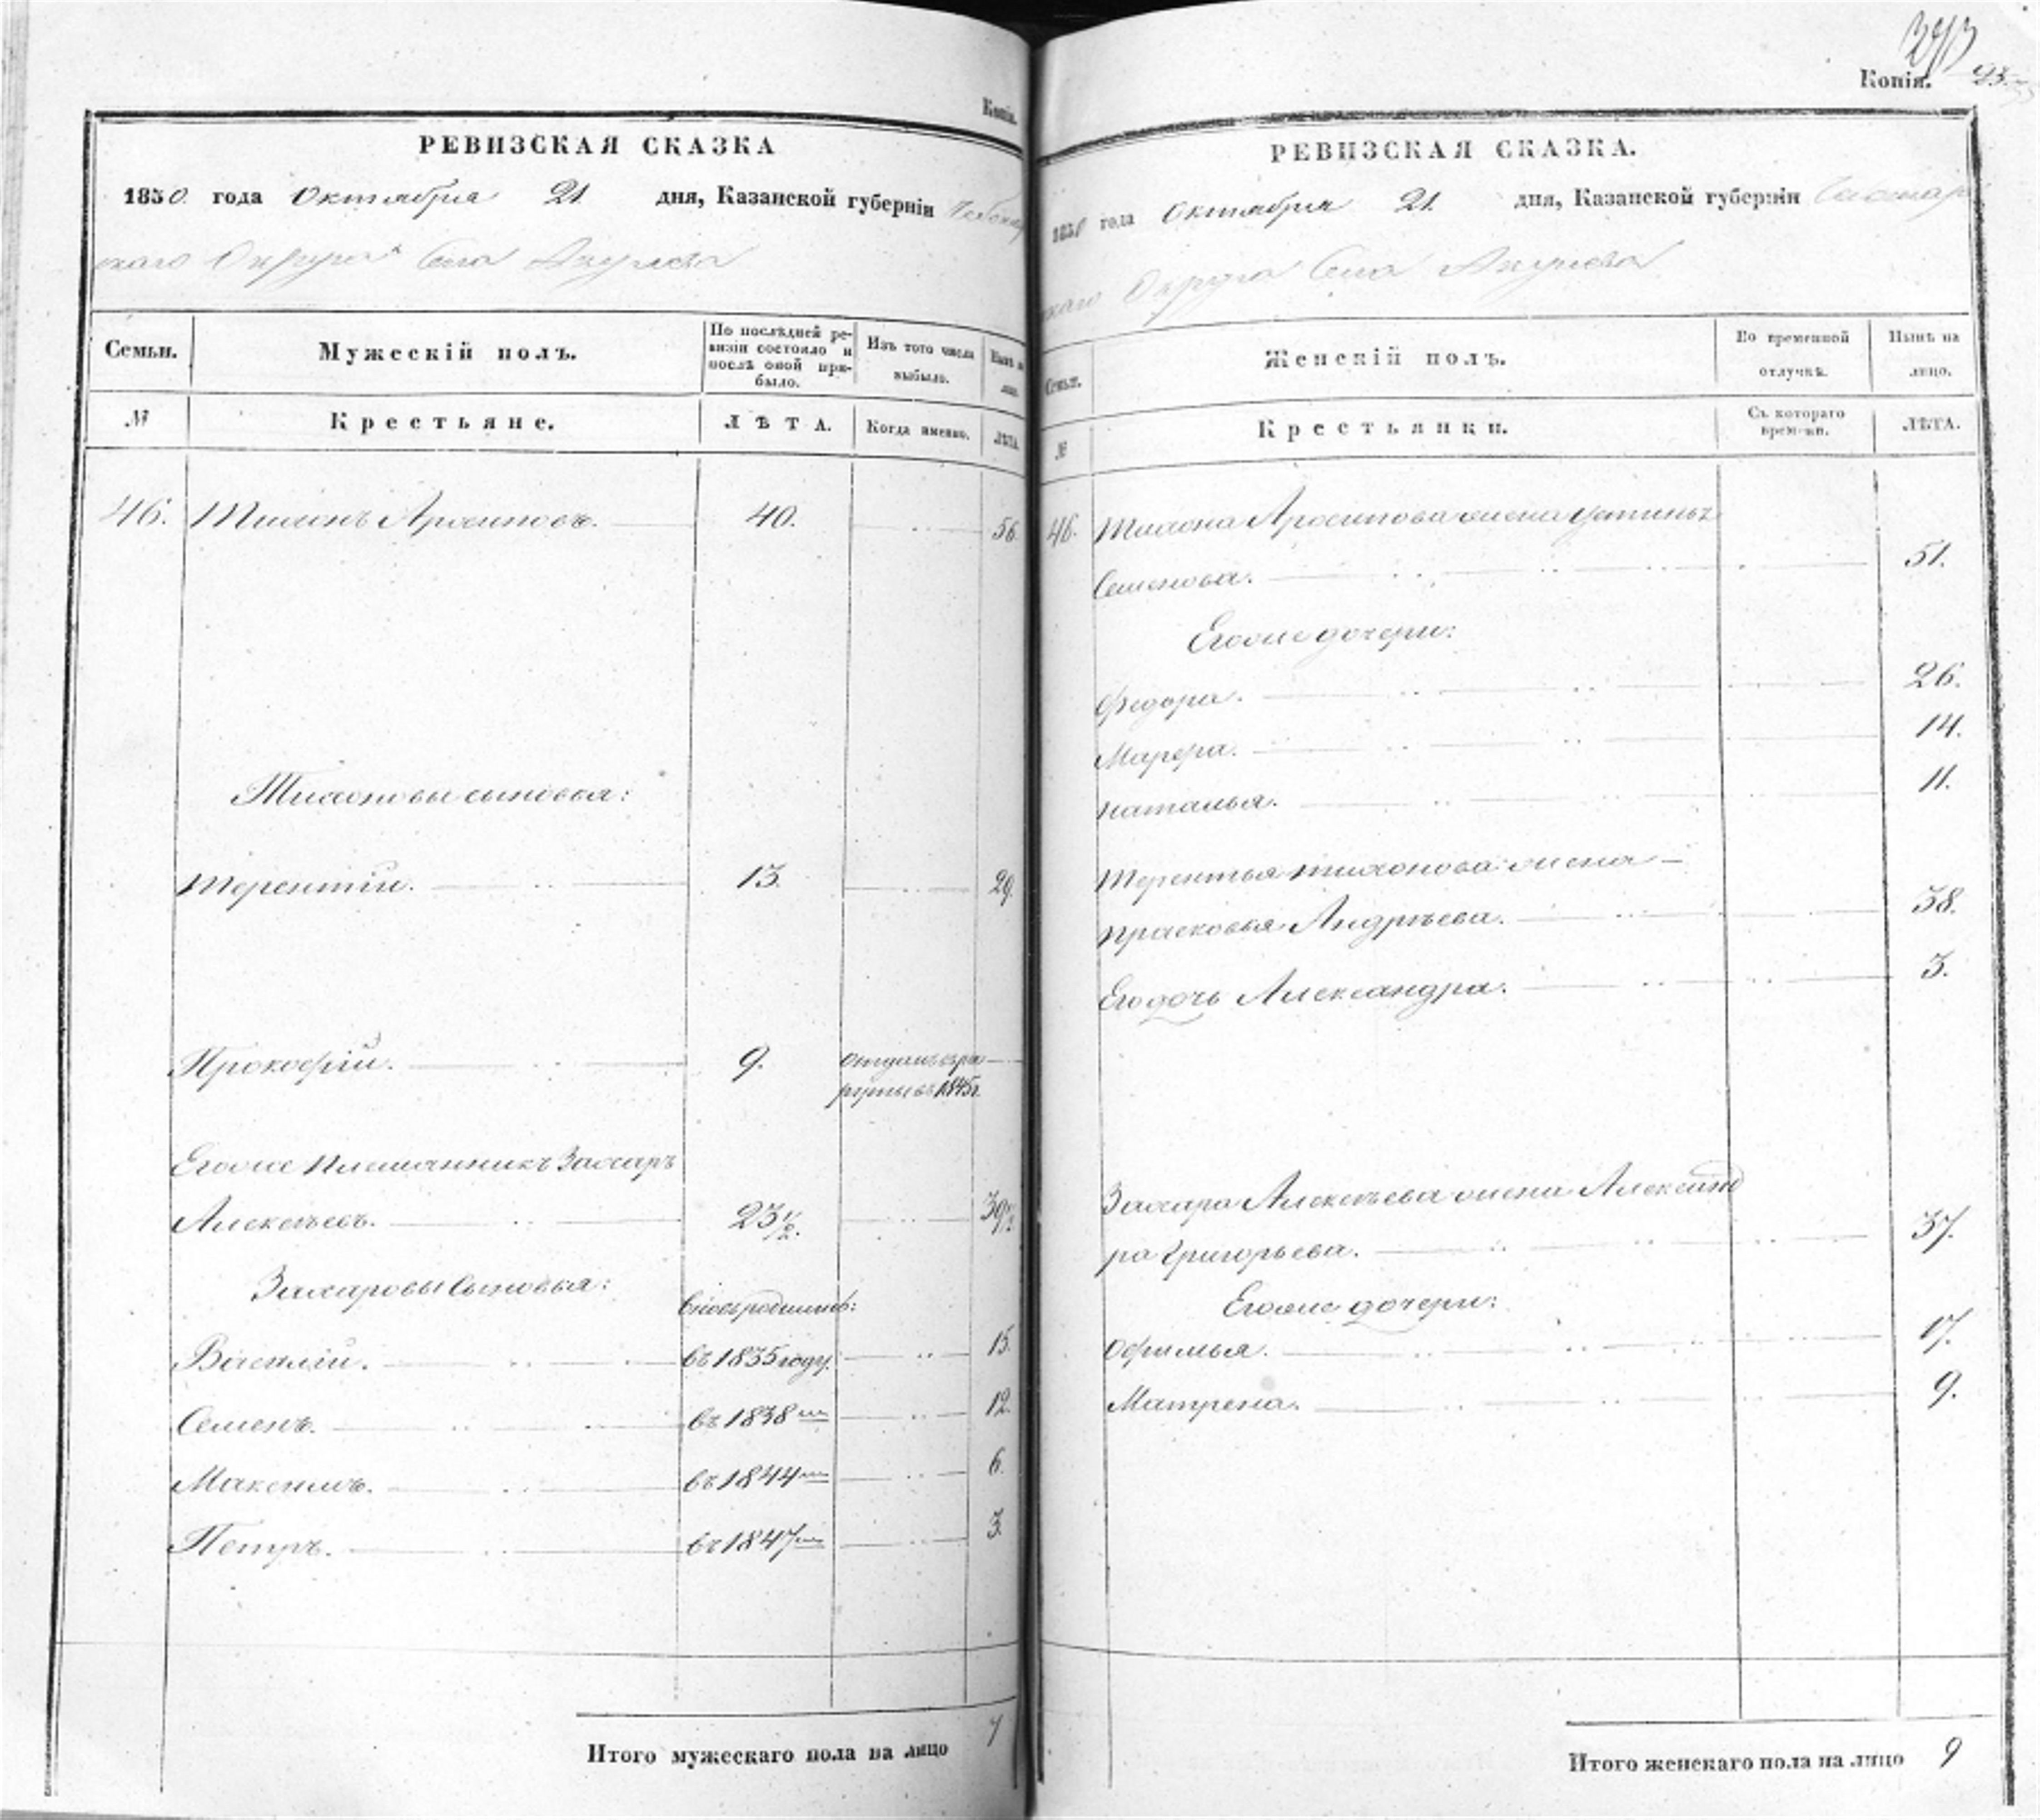 Копія.
РЕВИЗСКАЯ СКАЗКА
1850 года Октября 21 дня, Казанской губерніи Чебоксар
скаго Округа Села Акулева
Семьи.
Мужескій полъ.
По послѣдней ре-
визіи состояло и
послѣ оной при-
было.
Изъ того числа
выбыло.
Нынѣ на
лицо.
№
Крестьяне.
ЛѢТА.
Когда именно.
ЛѢТА.
46. Тихонъ Архиповъ. 40. 56.
Тихоновы сыновья:
Терентій. 13. 29.
Прокофій. 9. отданъ въ ре
круты въ 1845 г.
Егоже племянникъ Захаръ
Алексѣевъ. 23½. 39½.
Захаровы сыновья:
вновь рожденъ:
Василій. въ 1835 году. 15.
Семенъ. въ 1838 - 12.
Максимъ. въ 1844 - 6.
Петръ. въ 1847 - 3.
Итого мужескаго пола на лицо 7
293
Копія. 93
РЕВИЗСКАЯ СКАЗКА.
1850 года Октября 21. дня, Казанской губерніи Чебоксар
скаго Округа Села Акулева
Семьи.
Женскій полъ.
Во временной
отлучкѣ.
Нынѣ на
лицо.
№
Крестьянки.
Съ котораго
времени.
ЛѢТА.
46. Тихона Архипова жена Устинья
Семенова. 51.
Егоже дочери:
Федора. 26.
Марфа. 14.
Наталья. 11.
Терентья Тихонова жена
Прасковья Андрѣева. 38.
Его дочь Александра. 3.
Захара Алексѣева жена Александ
ра Григорьева. 37.
Егоже дочери:
Офимья. 17.
Матрена. 9.
Итого женскаго пола на лицо 9